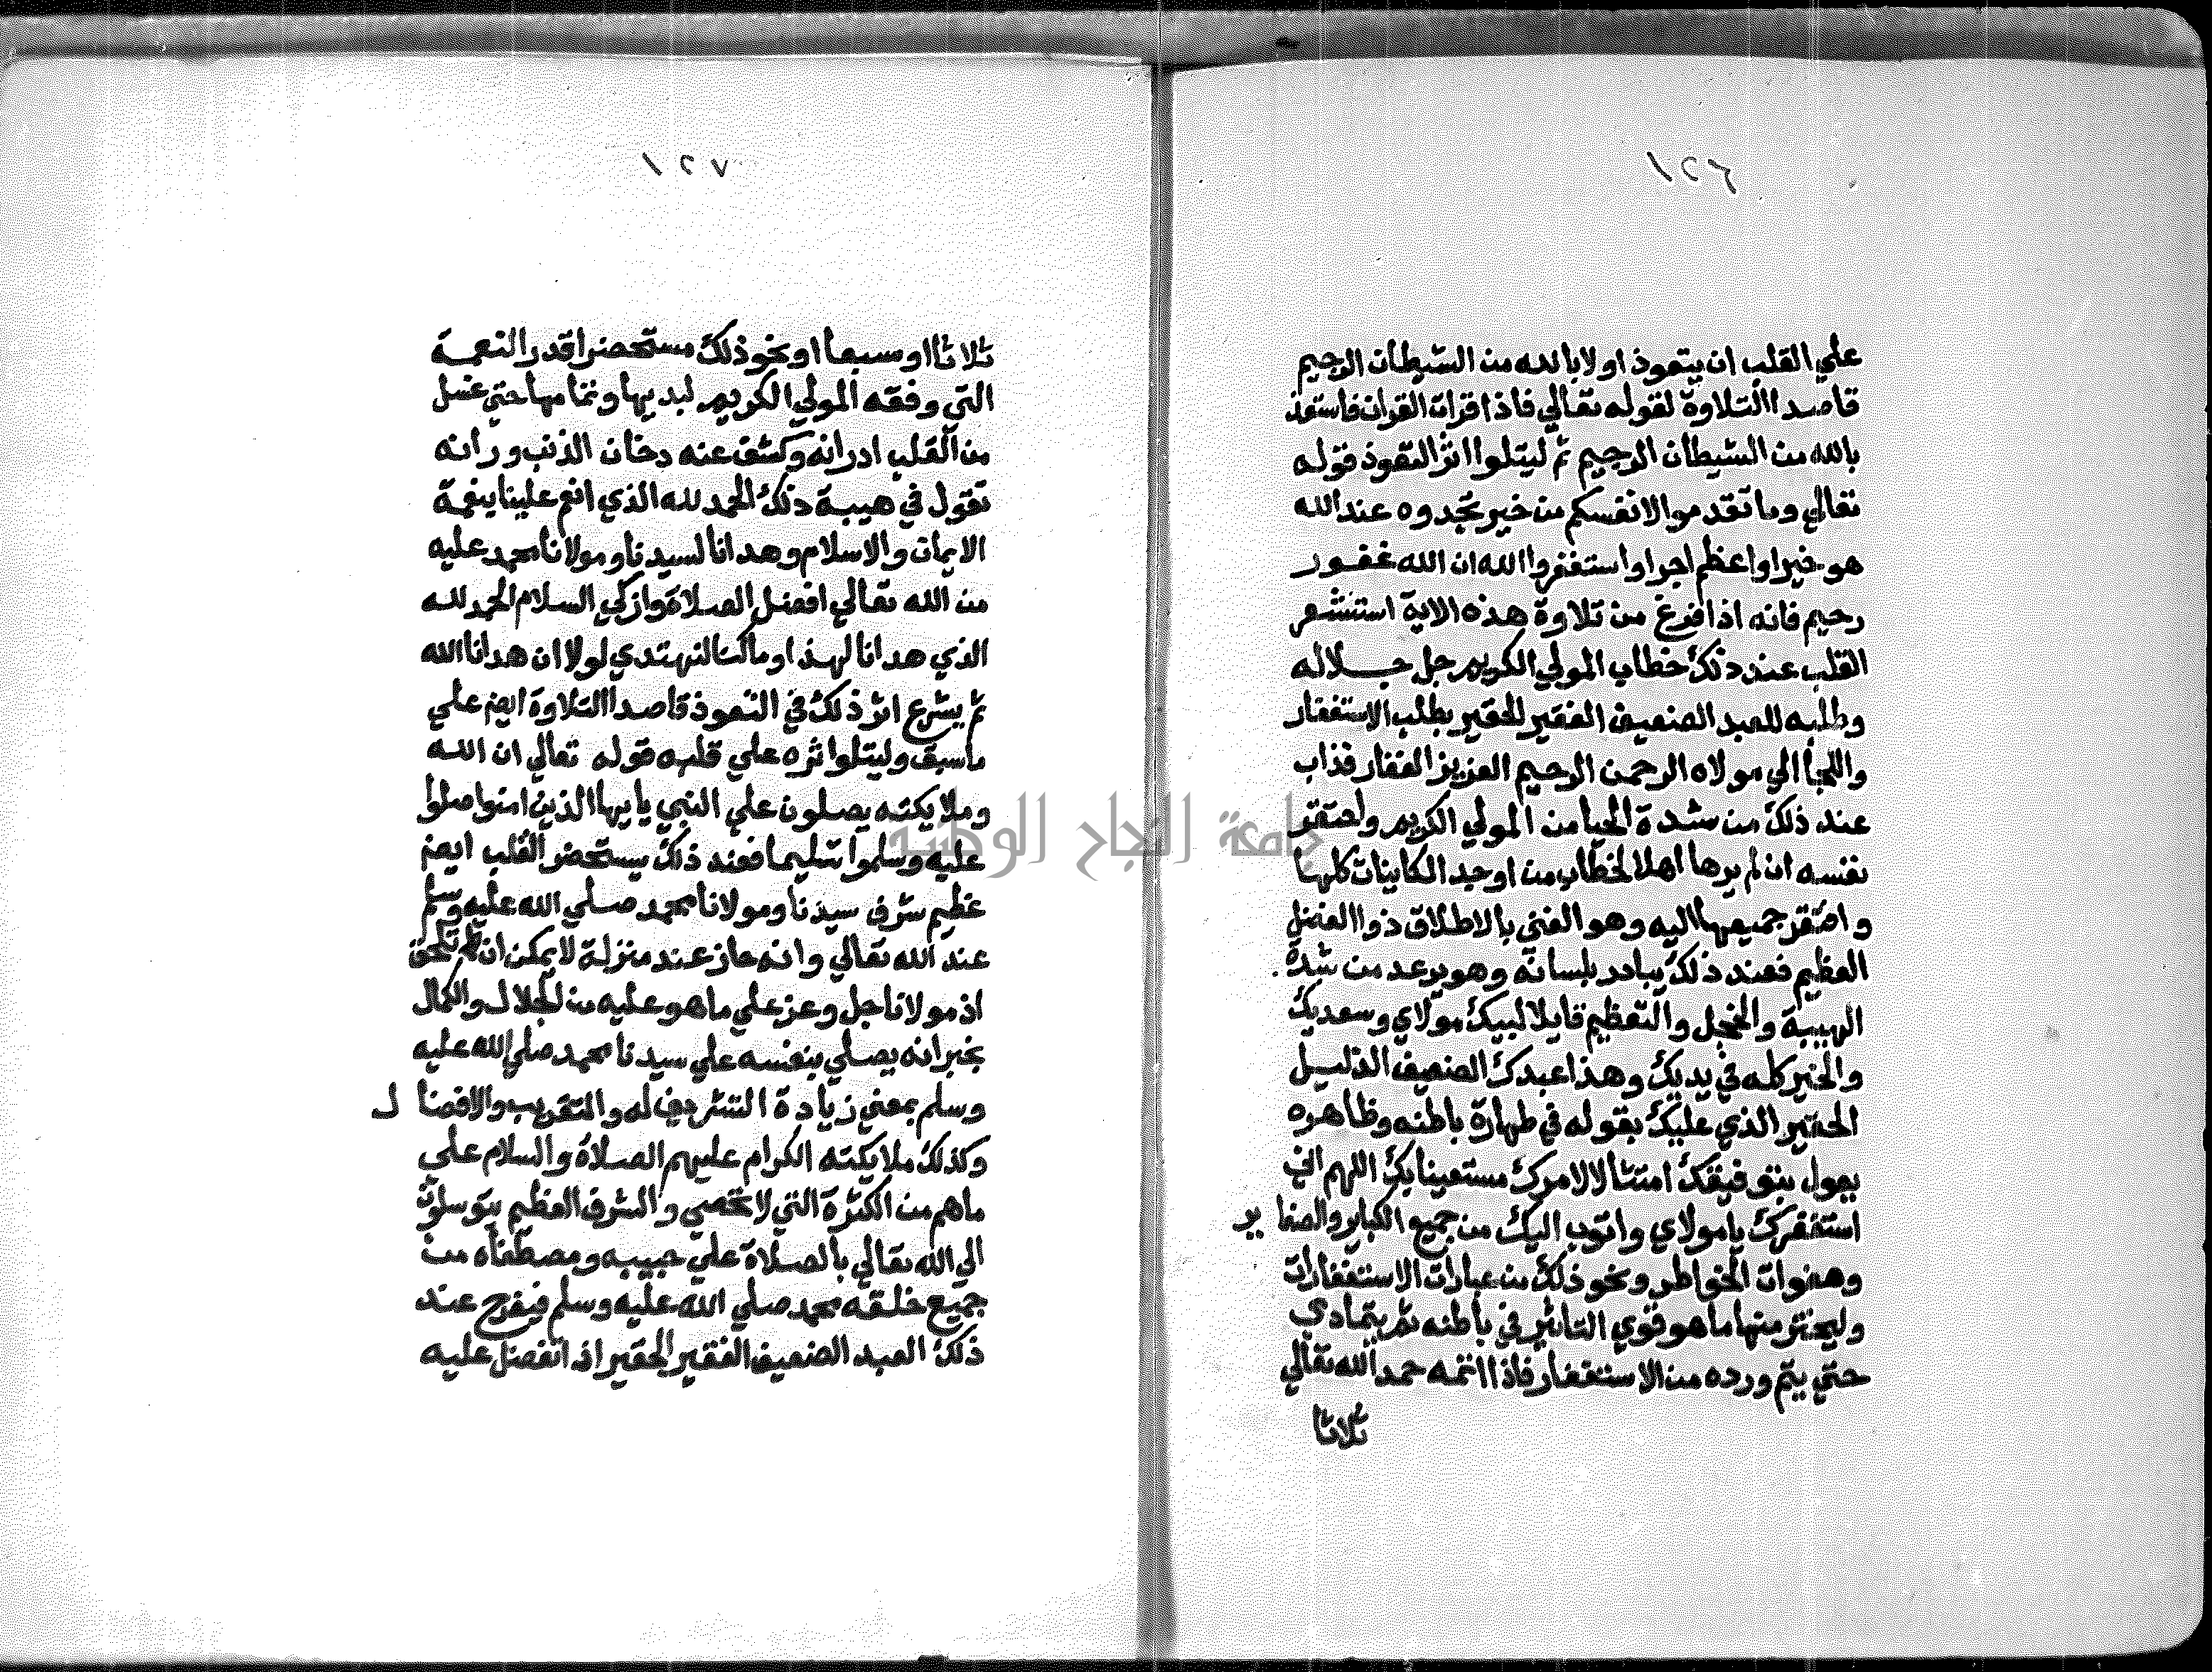 ١٢٦
علي القلب ان يتعوذ اولا بالله من الشيطان الرجيم
قاصدا التلاوة لقوله تعالي فاذا قرات القران فاستعذ
بالله من الشيطان الرجيم ثم ليتلوا اثر التعوذ قوله
تعالي وما تقدموا لانفسكم من خير تجدوه عند الله
هو خيرا واعظم اجرا واستغفروا الله ان الله غفور
رحيم فانه اذا فرغ من تلاوة هذه الاية استشعر
القلب عند ذلك خطاب المولي الكريم جل جلاله
وطلبه للعبد الضعيف الفقير الحقير بطلب الاستغفار
واللجا الي مولاه الرحمن الرحيم العزيز الغفار فذاب
عند ذلك من شدة الحيا من المولي الكريم واحتقر
نفسه ان لم يرها اهلا لخطاب من اوجد الكاينات كلها
وافتقر جميعها اليه وهو الغني بالاطلاق ذوا الفضل
العظيم فعند ذلك يبادر بلسانه وهو يرعد من شدة
الهيبة والخجل والتعظيم قايلا لبيك مولاي وسعديك
والخير كله في يديك وهذا عبدك الضعيف الذليل
الحقير الذي عليك بقوله في طهارة باطنه وظاهره
يقول بتوفيقك امتثالا لامرك مستعينا بك اللهم اني
استغفرك يا مولاي واتوب اليك من جميع الكباير والصغاير
وهفوات الخواطر ونحو ذلك من عبارات الاستغفارات
وليختر منها ما هو قوي التاثير في باطنه ثم يتمادي
حتي يتم ورده من الاستغفار فاذا اتمه حمد الله تعالي
ثلاثا
١٢٧
ثلاثا او سبعا او نحو ذلك مستحضرا قدر النعمة
التي وفقه المولي الكريم لبديها وتمامها حتي غسل
من القلب ادرانه وكشف عنه دخان الذنب ورانه
تقول في هيبة ذلك الحمد لله الذي انعم علينا بنعمة
الايمان والاسلام وهدانا لسيدنا ومولانا محمد عليه
من الله تعالي افضل الصلاة وازكي السلام الحمد لله
الذي هدانا لهذا وما كنا لنهتدي لولا ان هدانا الله
ثم يشرع اثر ذلك في التعوذ قاصدا التلاوة ايضا علي
ما سبق وليتلوا اثره علي قلبه قوله تعالي ان الله
وملايكته يصلون علي النبي يايها الذين امنوا صلوا
عليه وسلموا تسليما فعند ذلك يستحضر القلب ايضا
عظيم شرف سيدنا ومولانا محمد صلي الله عليه وسلم
عند الله تعالي وانه حاز عنده منزلة لا يمكن ان تلحق
اذ مولانا جل وعز علي ما هو عليه من الجلال والكمال
يخبر انه يصلي بنفسه علي سيدنا محمد صلي الله عليه
وسلم بمعني زيادة التشريف له والتقريب والافضال
وكذلك ملايكته الكرام عليهم الصلاة والسلام علي
ما هم من الكثرة التي لا تحصي والشرف العظيم يتوسلون
الي الله تعالي بالصلاة علي حبيبه ومصطفاه من
جميع خلقه محمد صلي الله عليه وسلم فيفرح عند
ذلك العبد الضعيف الفقير الحقير اذ اتفضل عليه
جامعة النجاح الوطنية